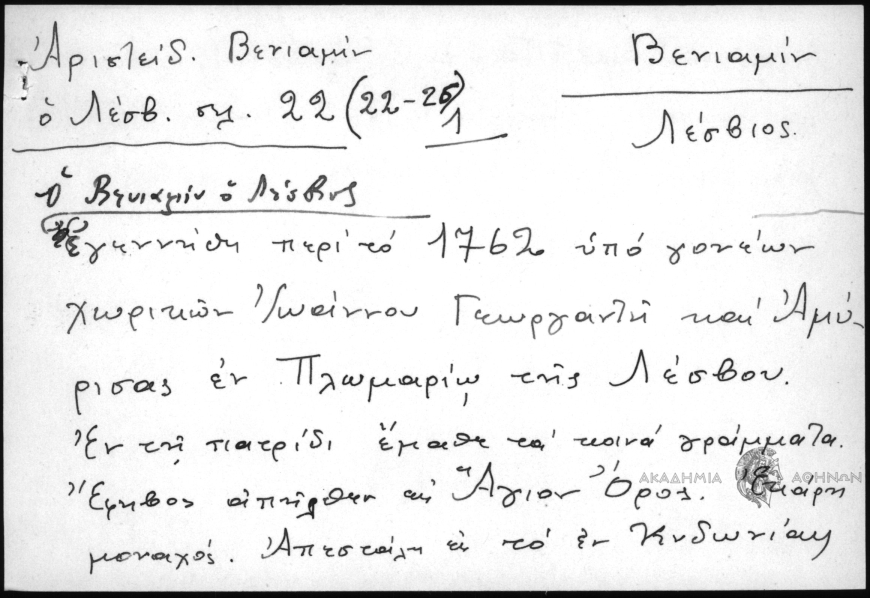 Ἀριστείδ. Βενιαμίν
ὁ Λέσβ. σελ. 22 (22-25)
1
Βενιαμίν
Λέσβιος.
Ὁ Βενιαμίν ὁ Λέσβιος
Ἐγεννήθη περί τό 1762 ὑπό γονέων
χωρικῶν Ἰωάννου Γεωργαντῆ καί Ἀμύ-
ρισας ἐν Πλωμαρίῳ τῆς Λέσβου.
Ἐν τῇ πατρίδι ἔμαθε τά κοινά γράμματα.
Ἔφηβος ἀπῆλθεν εἰς Ἅγιον Ὄρος. Ἐκάρη
μοναχός. Ἀπεστάλη εἰς τό ἐν Κυδωνίαις
ΑΚΑΔΗΜΙΑ ΑΘΗΝΩΝ